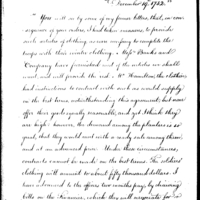 "December 19th 1782."
"You will see by one of my former letters, that, in con-
sequence of your orders, I had taken measures to provide
such articles of clothing as are necessary to complete the
troops with their winter clothing. Messrs Banks and
Company have furnished out of the articles we shall
want, and will provide the rest. Mr Hamilton, the clothier,
had instructions to contract with such as would supply
on the best terms, notwithstanding this agreement; but none
offer their goods equally reasonable, and yet I think they
are high; however, the demand among the planters is so
great, that they would sell with a ready sale among them,
and at an advanced price. Under these circumstances,
contracts cannot be made on the best terms. The soldiers'
clothing will amount to about fifty thousand dollars. I
have advanced to the officers two months' pay, by drawing
bills on the Financier, which they will negotiate for